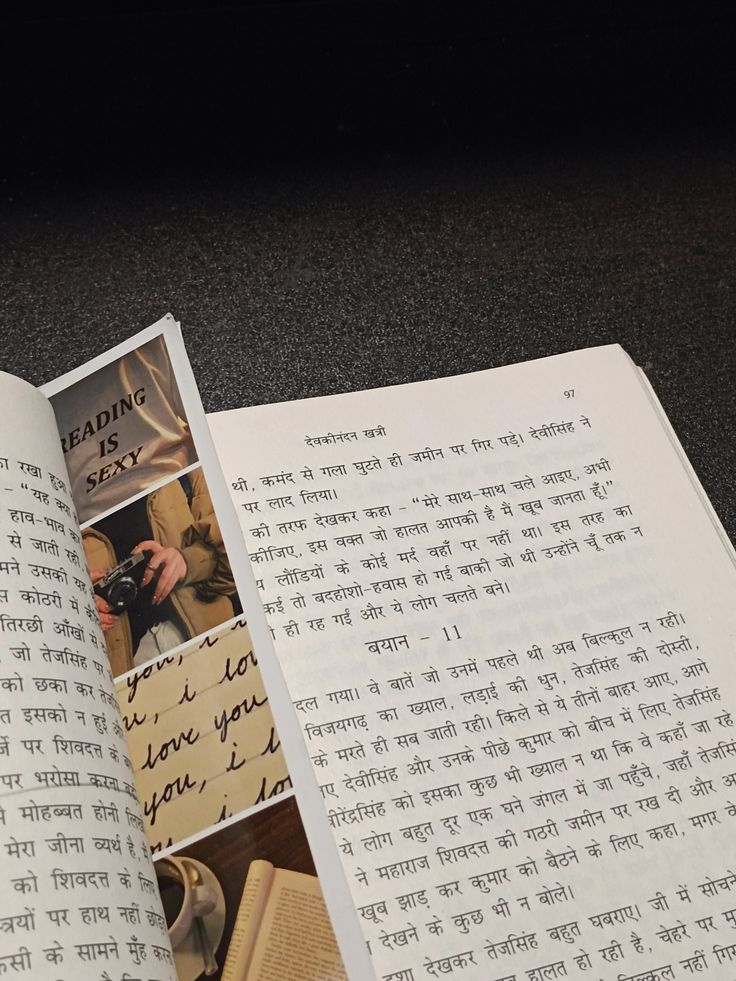 रखा हुआ
- “यह क्या
हाव-भाव
से जाती रही
उसकी यह
कोठरी में
तिरछी आँखों से
जो तेजसिंह पर
को छका कर
इसको न हुई
पर शिवदत्त के
पर भरोसा करना
मोहब्बत होनी
मेरा जीना व्यर्थ है,
को शिवदत्त के
पर हाथ नहीं
के सामने मुँह
READING
IS
SEXY
you, i
i lo
love you
you, i l
i lov
97
देवकीनंदन खत्री
थी, कमंद से गला घुटते ही जमीन पर गिर पड़े। देवीसिंह ने
पर लाद लिया।
की तरफ देखकर कहा – “मेरे साथ-साथ चले आइए, अभी
कीजिए, इस वक्त जो हालत आपकी है मैं खूब जानता हूँ।”
लौंडियों के कोई मर्द वहाँ पर नहीं था। इस तरह का
कई तो बदहोशो-हवास हो गई बाकी जो थी उन्होंने चूँ तक न
ही रह गईं और ये लोग चलते बने।
बयान – 11
दल गया। वे बातें जो उनमें पहले थी अब बिल्कुल न रही।
विजयगढ़ का ख्याल, लड़ाई की धुन, तेजसिंह की दोस्ती,
के मरते ही सब जाती रही। किले से ये तीनों बाहर आए, आगे
देवीसिंह और उनके पीछे कुमार को बीच में लिए तेजसिंह
वीरेंद्रसिंह को इसका कुछ भी ख्याल न था कि वे कहाँ जा रहे
ये लोग बहुत दूर एक घने जंगल में जा पहुँचे, जहाँ तेजसिं
ने महाराज शिवदत्त की गठरी जमीन पर रख दी और अ
खूब झाड़ कर कुमार को बैठने के लिए कहा, मगर वे
देखने के कुछ भी न बोले।
दशा देखकर तेजसिंह बहुत घबराए। जी में सोचने
हालत हो रही है, चेहरे पर मु
बिल्कुल नहीं गिर